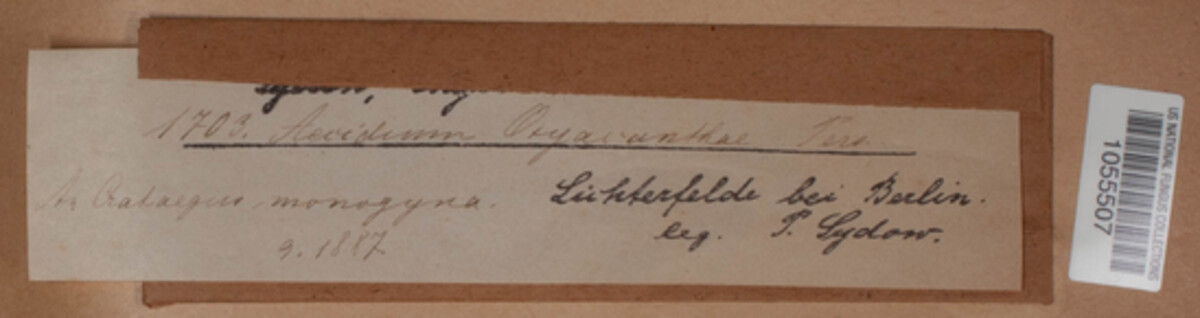 1703. Aecidium Oxyacanthae Pers.
Crataegus monogyna.
9. 1887
Lichterfelde bei Berlin.
leg. P. Sydow.
US NATIONAL FUNGUS COLLECTIONS
1055507